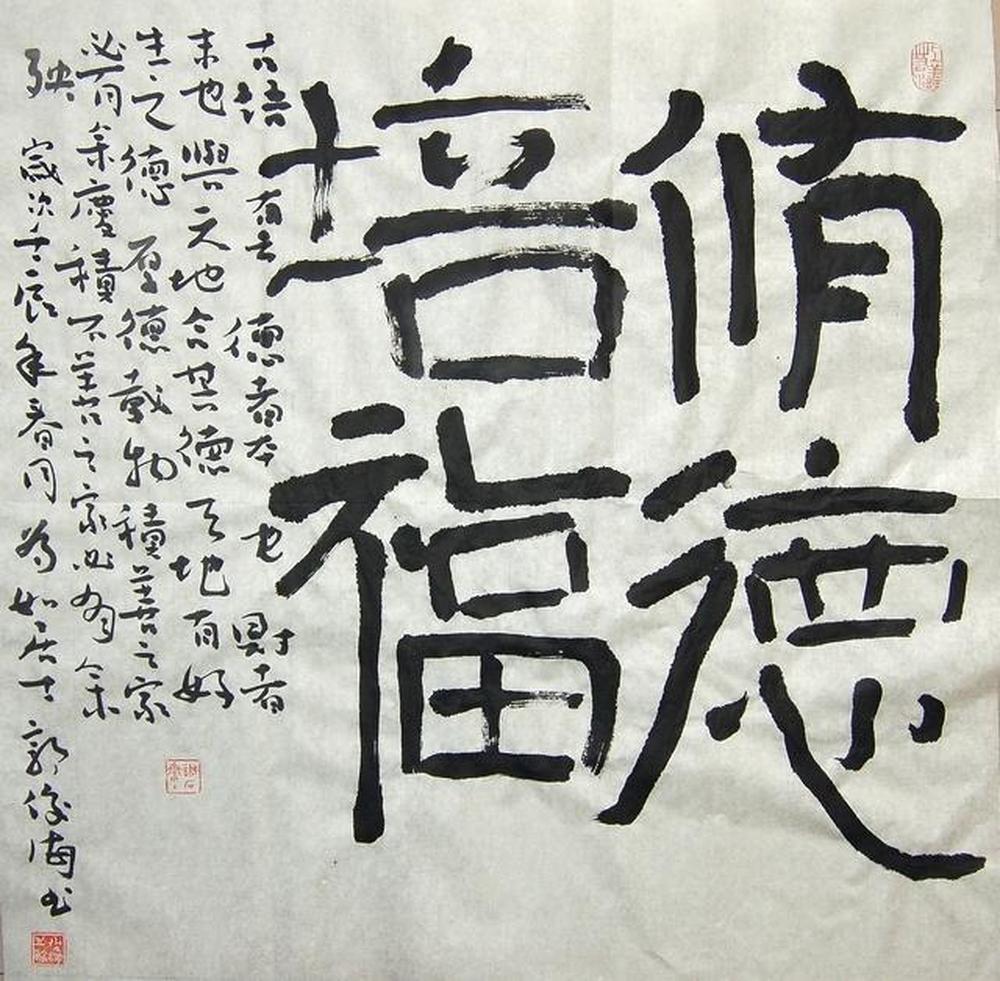 脩德
培福
古語有云德者本也財者
末也與天地合其德天地有好
生之德厚德載物積善之家
必有余慶積不善之家必有余
殃歲次壬辰年春月如居士郭俊海书